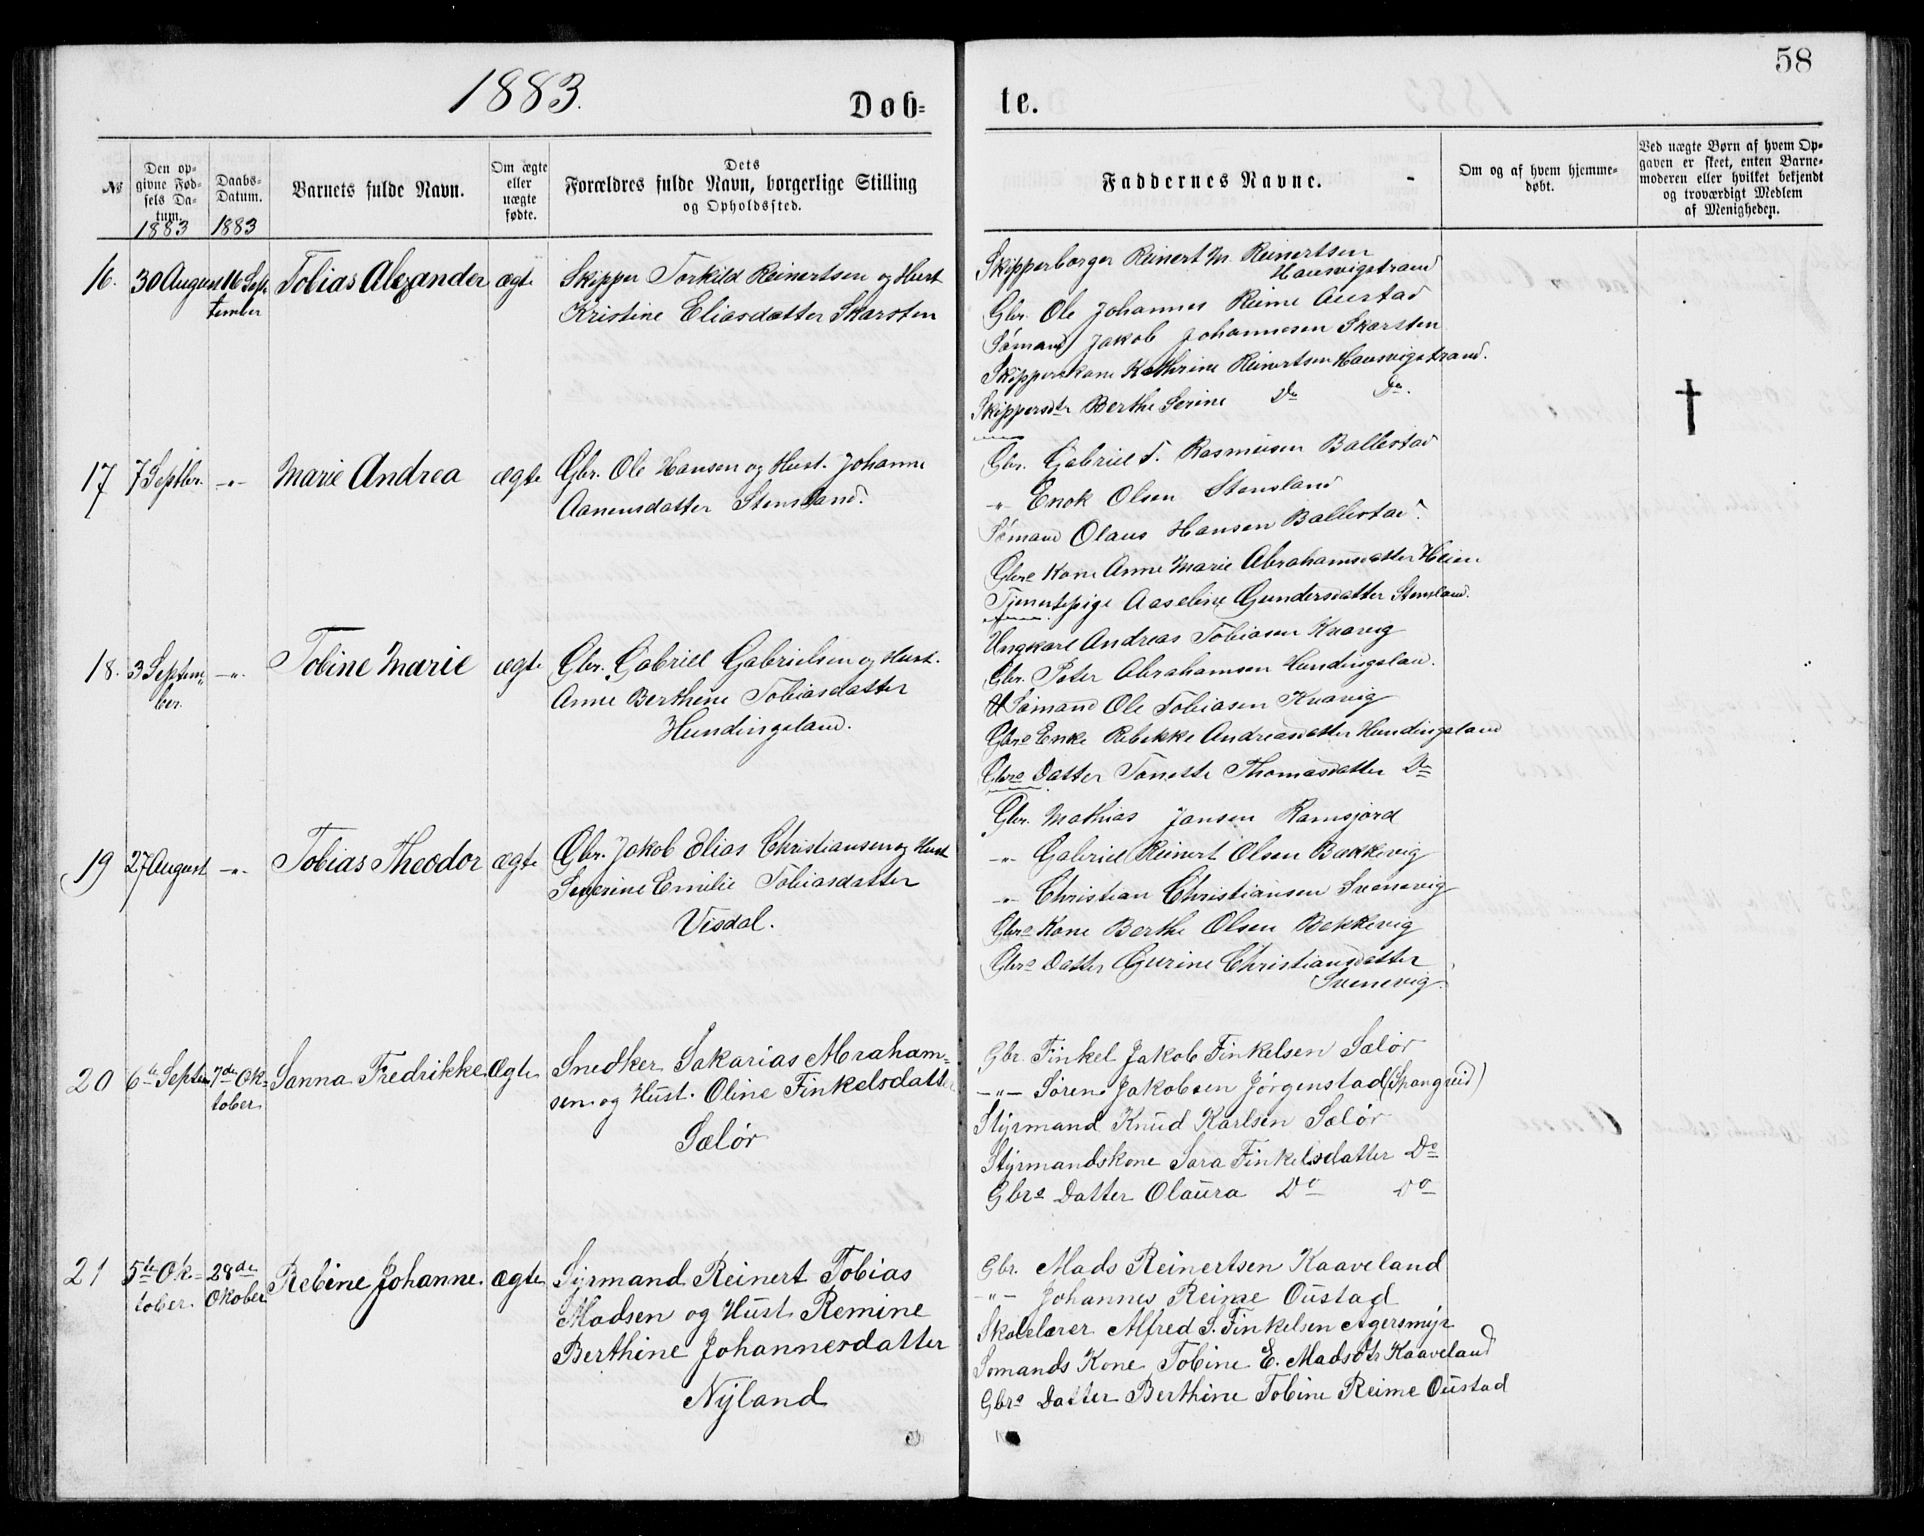 58
1883.
Døb-
te.
№
Den op-
givne Fød-
sels Da-
tum.
1883
Daabs-
Datum.
1883
Barnets fulde Navn.
Om ægte
eller
uægte
fødte.
Dets
Forældres fulde Navn, borgerlige Stilling
og Opholdssted.
Faddernes Navne.
Om og af hvem hjemme-
døbt.
Ved uægte Børn af hvem Op-
gaven er skeet, enten Barne-
moderen eller hvilket bekjendt
og troværdigt Medlem
af Menigheden.
16.
30 August
16 Sep-
tember
Tobias Alexander
ægte
Skipper Torkild Reinertsen og Hust
Kristine Eliasdatter Skarsten
Skipperborger Reinert M. Reinertsen
Hausvigstrand
Gbr. Ole Johannes Reime Austad
Sømand Jakob Johannesen Skarsten
Skipperskone Kathrine Reinertsen Hausvigstrand.
Skippersdtr Berthe Serine Do Do.
17
7 Septbr.
-"-
Marie Andrea
ægte
Gbr. Ole Hansen og Hust. Johanne
Aanensdatter Stensland.
Gbr. Gabriel T. Rasmusen Ballestad
-"- Enok Olsen Stensland
Sømand Olaus Hansen Ballestad.
Gbrs Kone Anne Marie Abrahamsdatter Heien
Tjenestepige Aaseline Gundersdatter Stensland.
18.
3 Septem-
ber.
-"-
Tobine Marie
ægte
Gbr. Gabriel Gabrielsen og Hust.
Anne Berthine Tobiasdatter
Hundingsland.
Ungkarl Andreas Tobiasen Knavig
Gbr. Peter Abrahamsen Hundingsland.
Sømand Ole Tobiasen Knavig
Gbrs Enke Rebekke Andreasdatter Hundingsland
Gbrs Datter Tonette Thomasdatter Do
19
27 August
-"-
Tobias Theodor
ægte
Gbr. Jakob Elias Christiansen og Hust
Severine Emilie Tobiasdatter
Visdal.
Gbr. Mathias Jansen Ramsjord
-"- Gabriel Reinert Olsen Bækkevig
-"- Christian Christiansen Svenevig
Gbrs Kone Berthe Olsen Bekkevig
Gbrs Datter Gurine Christiansdatter
Svenevig.
20
6te Septem
7de Ok-
tober
Sanna Fredrikke
Ægte
Snedker Sakarias Abraham-
sen og Hust. Oline Finkelsdatter
Sælør
Gbr Finkel Jakob Finkelsen Sælør
-"- Søren Jakobsen Jørgenstad (Spangreid)
Styrmand Knud Karlsen Sælør
Styrmandskone Sara Finkelsdatter Do
Gbrs Datter Olaura Do Do
21
5te Ok-
tober.
28de
Okober
Rebine Johanne.
ægte
Syrmand Reinert Tobias
Madsen og Hust Remine
Berthine Johannesdatter
Nyland
Gbr. Mads Reinertsen Kaaveland
-"- Johannes Reime Oustad
Skolelærer Alfred S. Finkelsen Agersmyr
Somands Kone Tobine E. Madsdtr Kaaveland
Gbrs Datter Berthine Tobine Reime Oustad